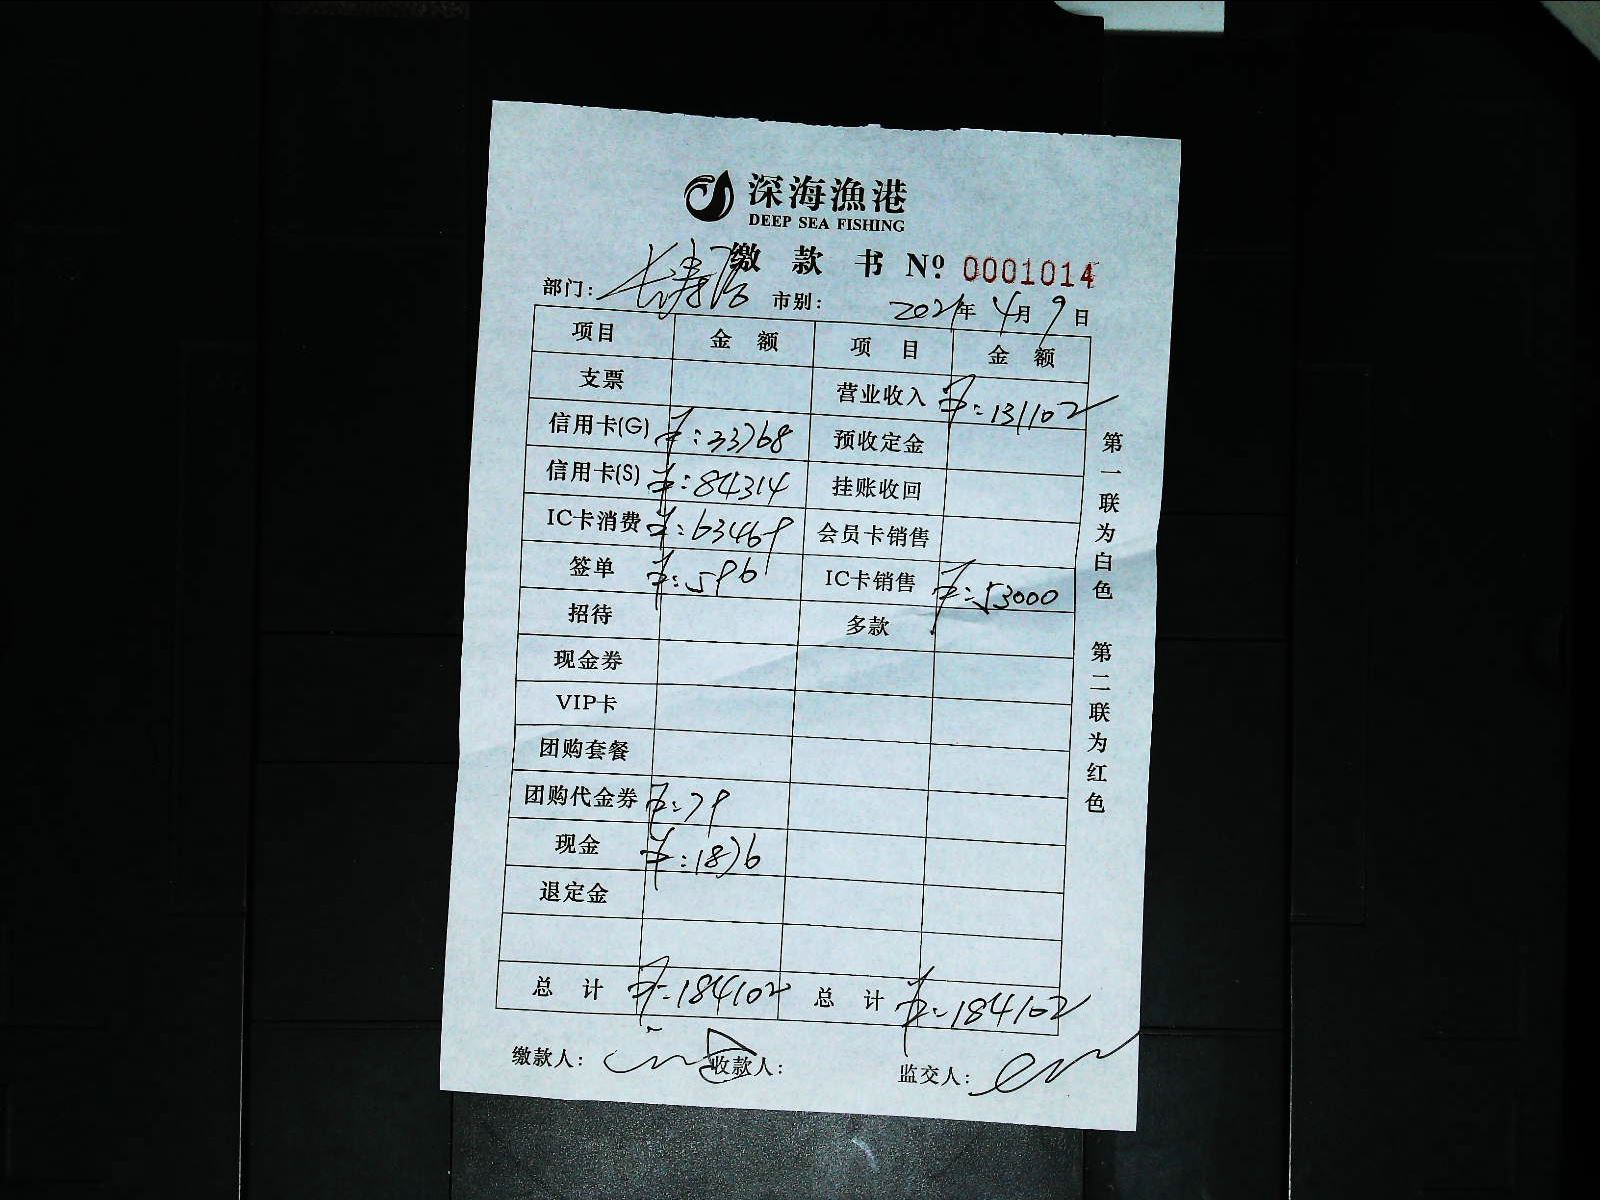 深海漁港
DEEP SEA FISHING
缴款书 Nº 0001014
部门: 长寿路 市别: 2021年 4月 9日
项目 金额 项目 金额
支票 营业收入 ¥:131102
信用卡(G) ¥:33768 预收定金
信用卡(S) ¥:84314 挂账收回
IC卡消费 ¥:63469 会员卡销售
签单 ¥:596 IC卡销售 ¥:53000
招待 多款
现金券
VIP卡
团购套餐
团购代金券 ¥:79
现金 ¥:1876
退定金
总计 ¥:184102 总计 ¥:184102
缴款人: 收款人: 监交人:
第一联为白色 第二联为红色